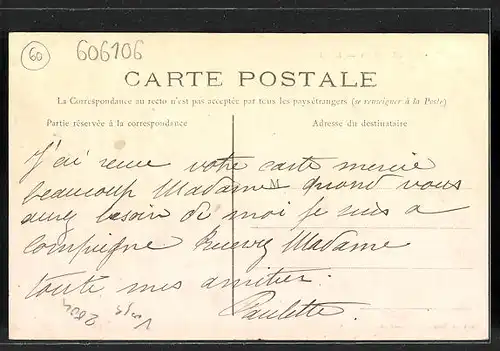 60
606106
CARTE POSTALE
La Correspondance au recto n'est pas acceptée par tous les pays étrangers (se renseigner à la Poste)
Partie réservée à la correspondance
Adresse du destinataire
J'ai recue votre carte mercie
beaucoup Madame quand vous
M
aurez besoin de moi je suis a
Compiegne Recevez Madame
toute mes amitier.
Paulette.